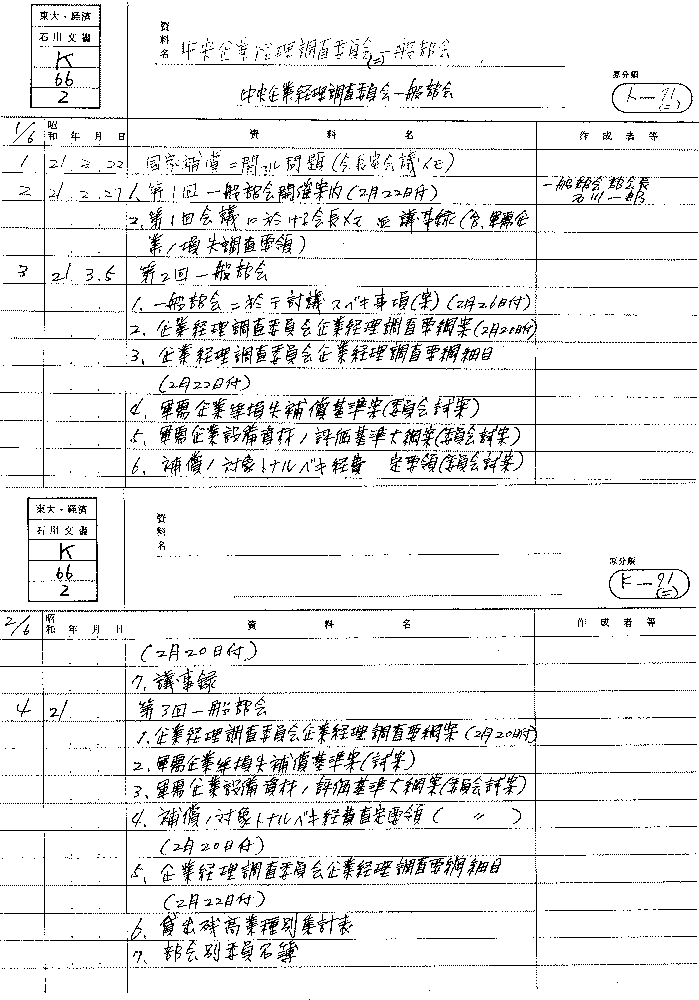 東大・経済
石川文書
K
66
2
資料名 中央企業経理調査委員会(二)一般部会
中央企業経理調査委員会一般部会
原分類
K—91(二)
1/6 昭和 年 月 日 資 料 名 作成者等
1 21. 2. 22 国家補償ニ関スル問題(会長会議メモ)
2 21. 2. 27 1. 第1回一般部会開催案内(2月22日付) 一般部会部会長
石川一郎
2. 第1回会議ニ於ける会長メモ並議事録(含、軍需企
業ノ損失調査要領)
3 21. 3. 5 第2回一般部会
1. 一般部会ニ於テ討議スベキ事項(案)(2月26日付)
2. 企業経理調査委員会企業経理調査要綱案(2月20日付)
3. 企業経理調査委員会企業経理調査要綱細目
(2月22日付)
4. 軍需企業等損失補償基準案(委員会試案)
5. 軍需企業設備資材ノ評価基準大綱案(委員会試案)
6. 補償ノ対象トナルベキ経費 定要領(委員会試案)
東大・経済
石川文書
K
66
2
資料名
原分類
K—91(二)
2/6 昭和 年 月 日 資 料 名 作成者等
(2月20日付)
7. 議事録
4 21 第3回一般部会
1. 企業経理調査委員会企業経理調査要綱案(2月20日付)
2. 軍需企業等損失補償基準案(試案)
3. 軍需企業設備資材ノ評価基準大綱案(委員会試案)
4. 補償ノ対象トナルベキ経費査定要領( 〃 )
(2月20日付)
5. 企業経理調査委員会企業経理調査要綱細目
(2月22日付)
6. 貸出残高業種別集計表
7. 部会別委員名簿